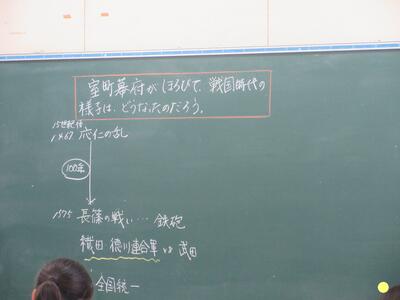 室町幕府がほろびて、戦国時代の
様子は、どうなったのだろう。
15世紀後
1467 応仁の乱
100年
1575 長篠の戦い… 鉄砲
織田 徳川連合軍 vs 武田
全国統一